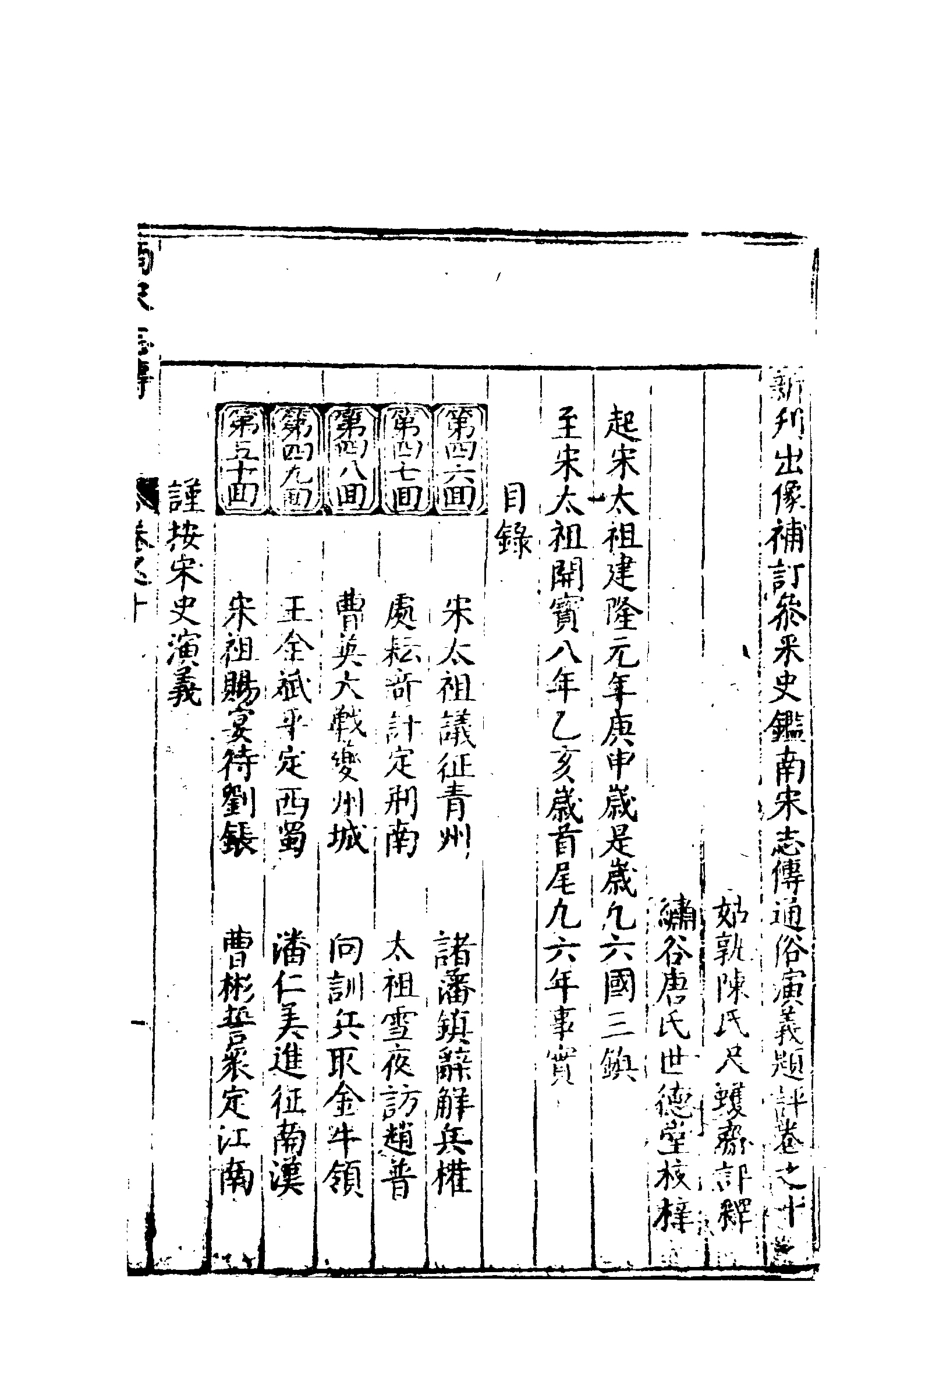 新刊出像補訂參采史鑑南宋志傳通俗演義題評卷之十
姑孰陳氏尺蠖齋評釋
繡谷唐氏世德堂校梓
起宋太祖建隆元年庚申歲是歲凡六國三鎮
至宋太祖開寶八年乙亥歲首尾九六年事實
目錄
第四六回 宋太祖議征青州 諸藩鎮辭解兵權
第四七回 處耘奇計定荆南 太祖雪夜訪趙普
第四八回 曹英大戰夔州城 向訓兵取金牛領
第四九回 王全斌平定西蜀 潘仁美進征南漢
第五十回 宋祖賜宴待劉鋹 曹彬誓眾定江南
謹按宋史演義
卷之十